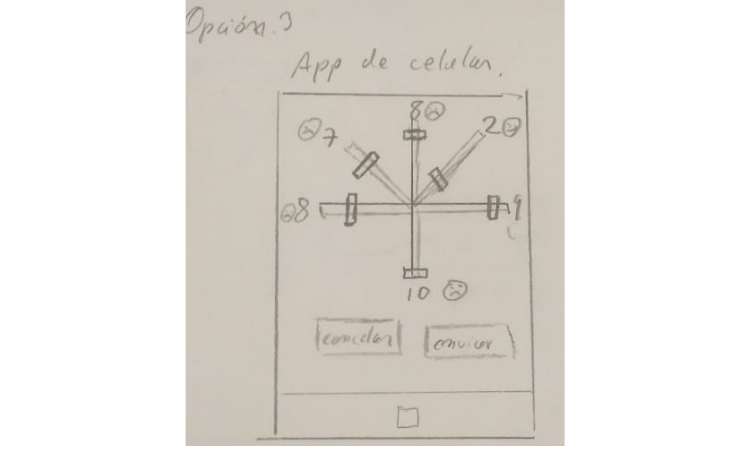 Opción. 3
App de celular.
8
7
2
8
9
10
cancelar
enviar